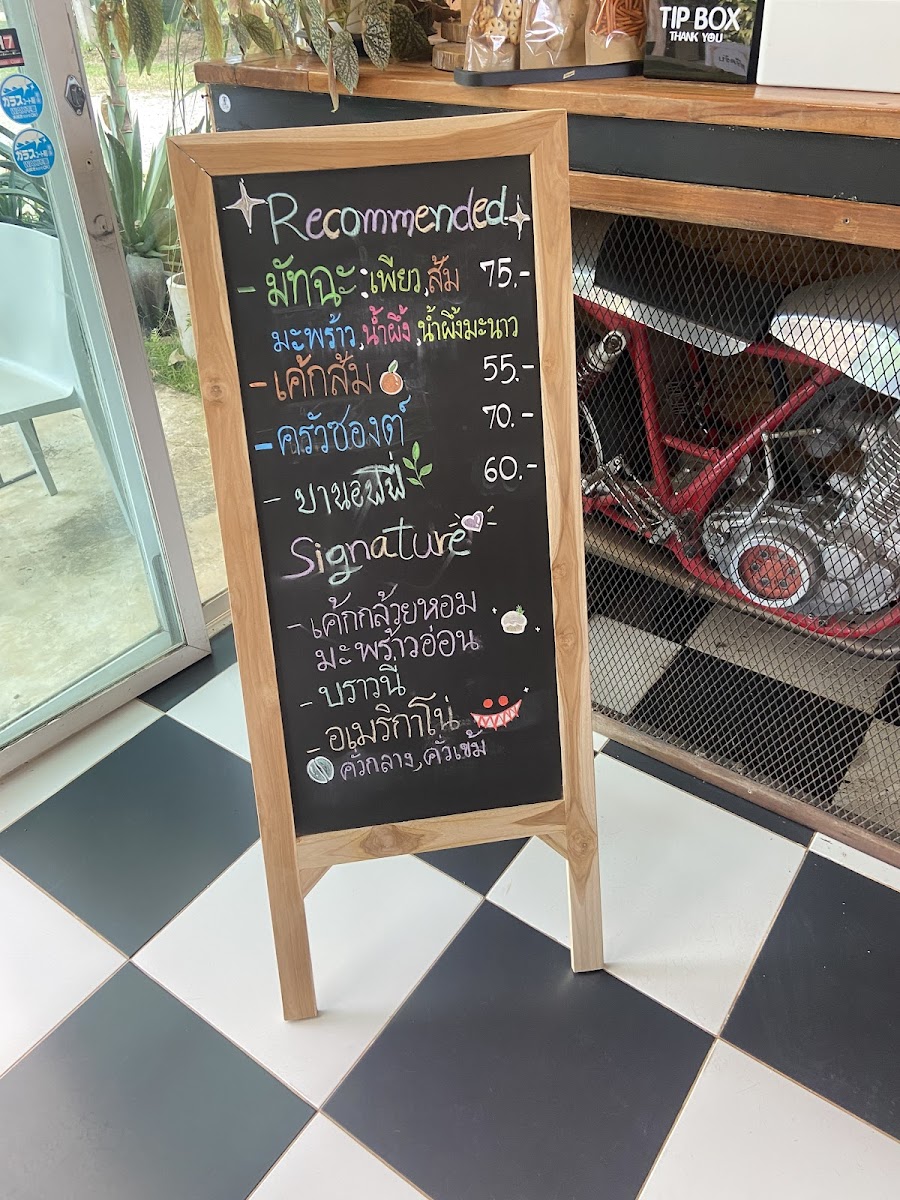 TIP BOX
THANK YOU
17
ガラスコート剤
ガラスコート剤
Recommended
- มัทฉะ : เพียว, ส้ม 75.-
มะพร้าว, น้ำผึ้ง, น้ำผึ้งมะนาว
- เค้กส้ม 55.-
- ครัวซองต์ 70.-
- บานอฟฟี่ 60.-
Signature
- เค้กกล้วยหอม
มะพร้าวอ่อน
- บราวนี่
- อเมริกาโน่
คั่วกลาง, คั่วเข้ม